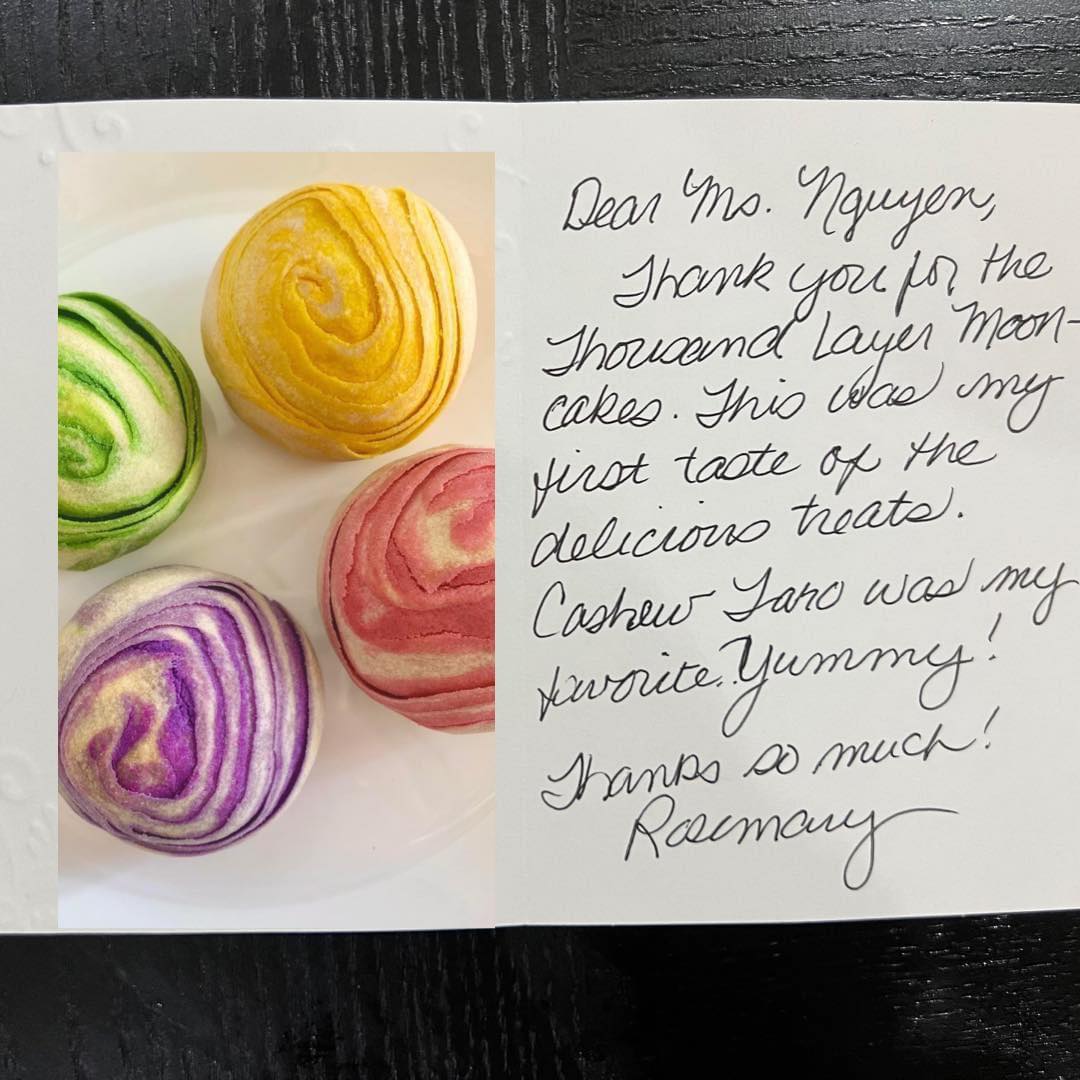 Dear Ms. Nguyen,
Thank you for the
Thousand Layer Moon-
cakes. This was my
first taste of the
delicious treats.
Cashew Taro was my
favorite. Yummy!
Thanks so much!
Rosemary